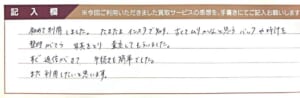 記入欄
※今回ご利用いただきました買取サービスの感想を、手書きにてご記入お願いします
初めて利用しました。たまたまインスタで知り、古くさいかなと思う バッグや時計を
整理がてら 査定してもらいました。
すぐ返信がきて 手続きも簡単でした。
また利用したいと思います。